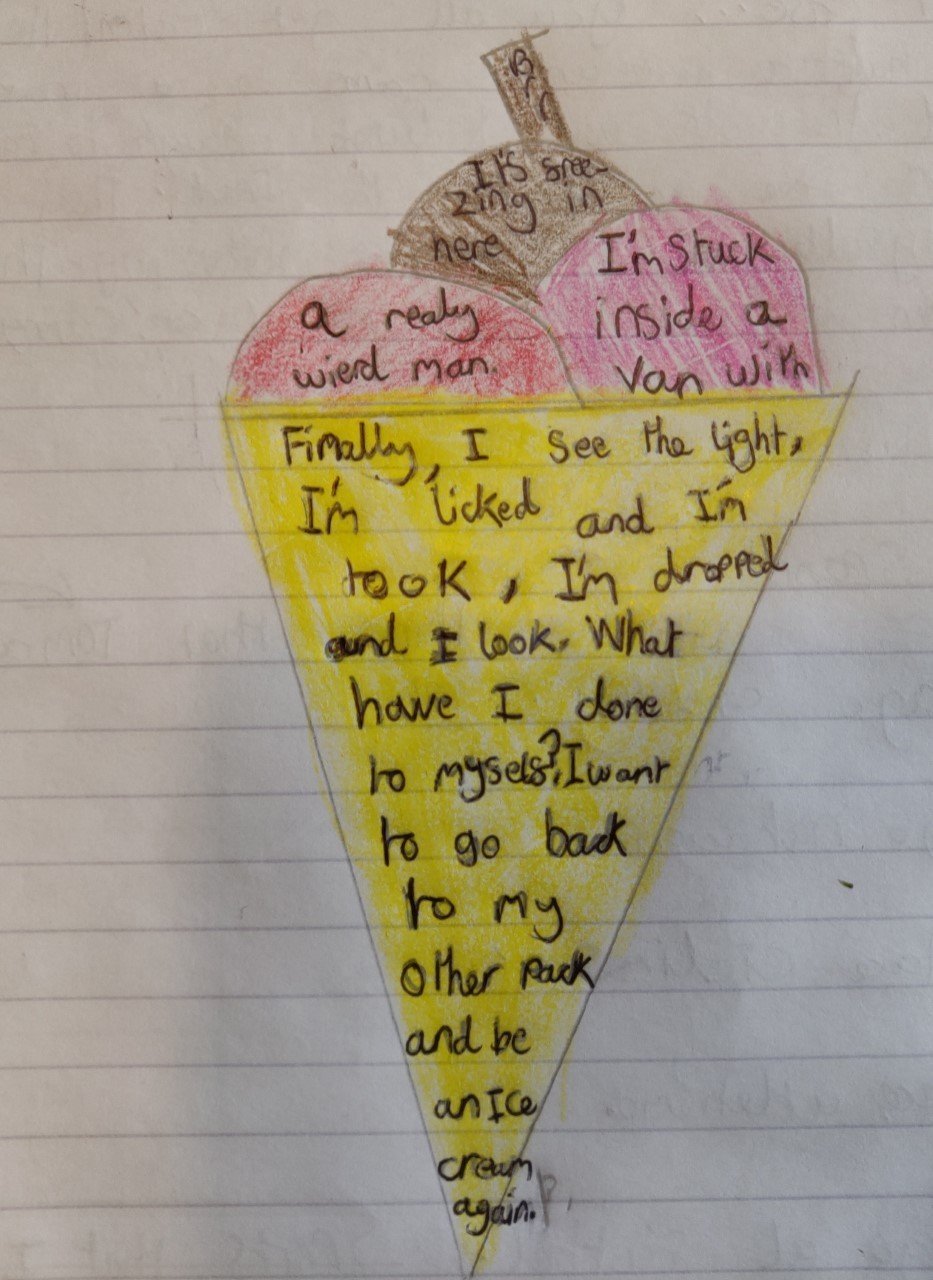 Brr
It's free-
zing in
here
I'm stuck
inside a
van with
a realy
wierd man.
Finally, I see the light,
I'm licked and I'm
took, I'm dropped
and I look. What
have I done
to myself? I want
to go back
to my
other pack
and be
an Ice
cream
again.